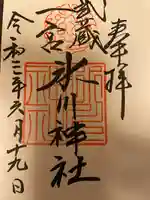 奉拝
武蔵
一宮
氷川神社
令和三年六月十九日